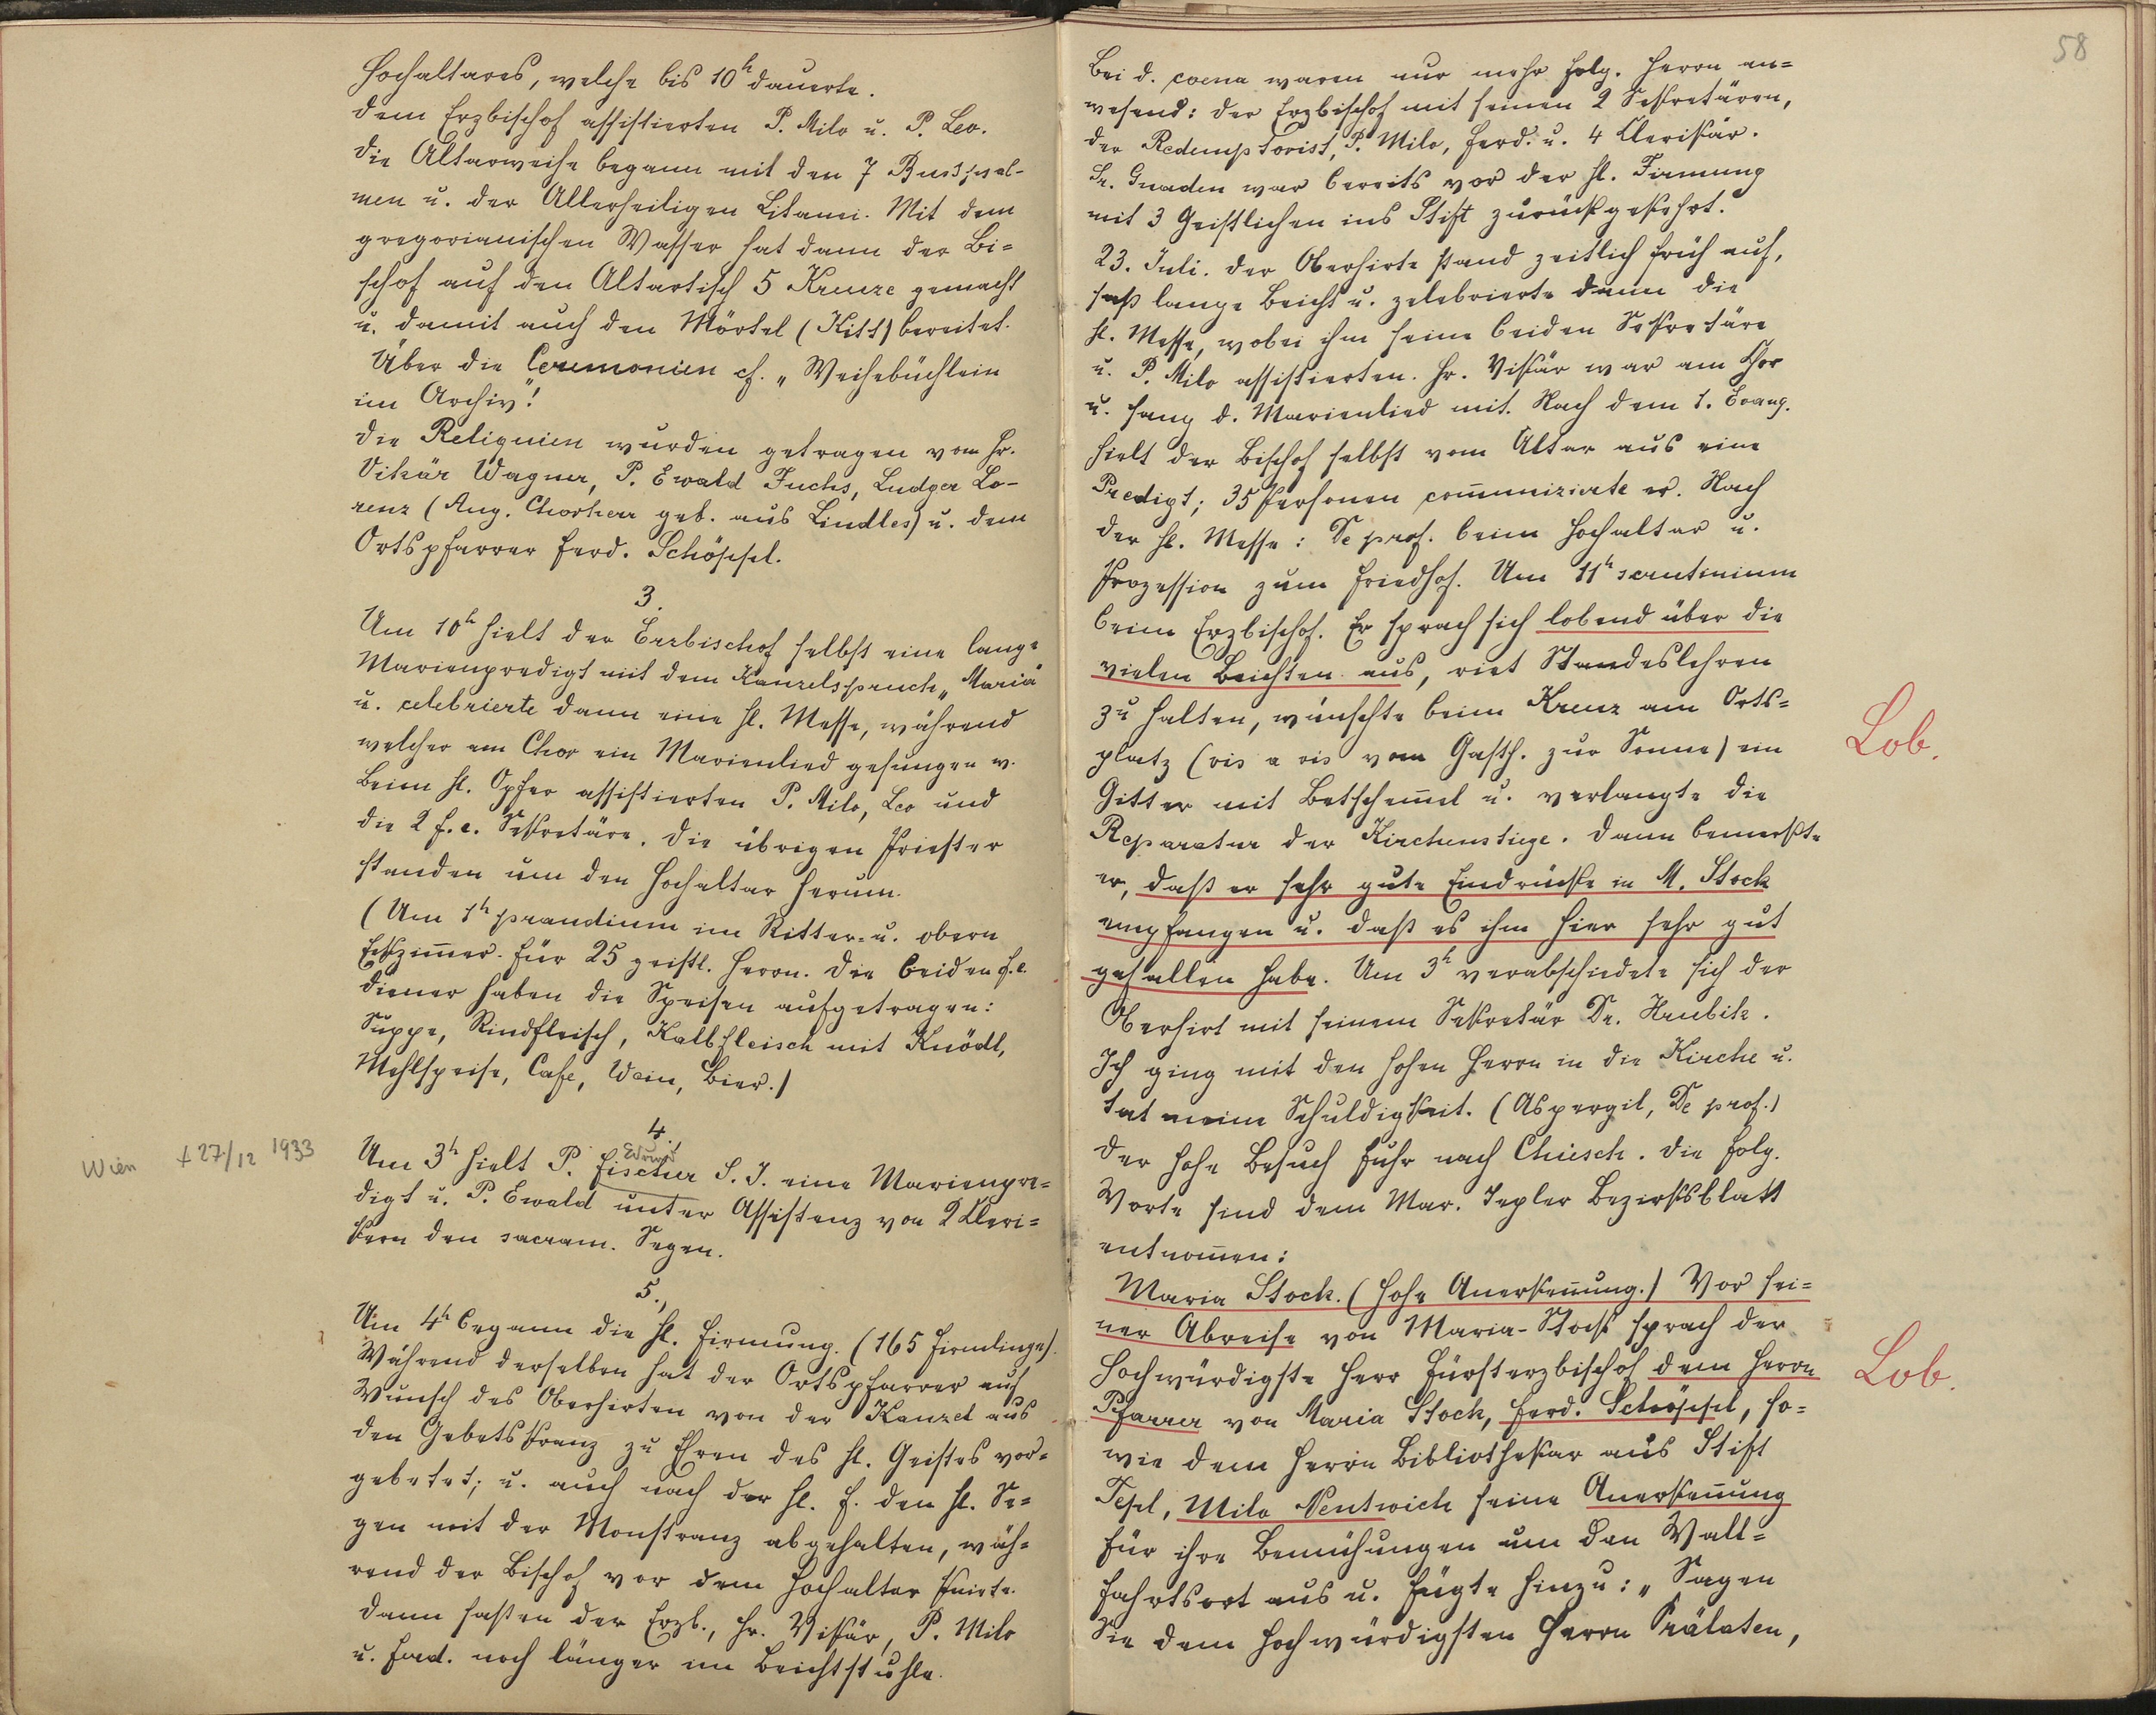 Hochaltares, welche bis 10h dauerte.
Dem Erzbischof assistierten P. Milo u. P. Leo.
Die Altarweihe begann mit den 7 Busspsal-
men u. der Allerheiligen Litanei. Mit dem
gregorianischen Wasser hat dann der Bi=
schof auf den Altartisch 5 Kreuze gemacht
u. damit auch den Mörtel (Kitt) bereitet.
Über die Ceremonien cf. „Weihebüchlein
im Archiv"!
Die Reliquien wurden getragen vom Hr.
Vikär Wagner, P. Ewald Fuchs, Ludger Lo-
renz (Aug. Chorherr geb. aus Lindles) u. dem
Ortspfarrer Ferd. Schöppl.
3.
Um 10h hielt der Erzbischof selbst eine lange
Marienpredigt mit dem Kanzelspruch „Maria"
u. celebrierte dann eine hl. Messe, während
welcher am Chor ein Marienlied gesungen w.
Beim hl. Opfer assistierten P. Milo, Leo und
die 2 f. e. Sekretäre. Die übrigen Priester
standen um den Hochaltar herum.
(Um 1h prandium im Ritter- u. obern
Eckzim̄er für 25 geistl. Herrn. Die beiden f. e.
Diener haben die Speisen aufgetragen:
Suppe, Rindfleisch, Kalbfleisch mit Knödl,
Mehlspeise, Cafe, Wein, Bier.)
4.
Wien + 27/12 1933
Edmund
Um 3h hielt P. Fischer S. J. eine Marienpre=
digt u. P. Ewald unter Assistenz von 2 Kleri=
kern den sacram. Segen.
5.,
Um 4h begann die hl. Firmung. (165 Firmlinge).
Während derselben hat der Ortspfarrer auf
Wunsch des Oberhirten von der Kanzel aus
den Gebetskranz zu Ehren des hl. Geistes vor=
gebetet; u. auch nach der hl. F. den hl. Se=
gen mit der Monstranz abgehalten, wäh=
rend der Bischof vor dem Hochaltar kniete.
Dann saßen der Erzb., Hr. Vikär, P. Milo
u. Ferd. noch länger im Beichtstuhle.
58
Bei d. coena waren nur mehr folg. Herrn an=
wesend: der Erzbischof mit seinen 2 Sekretären,
der Redemptorist, P. Milo, Ferd. u. 4 Clerikär.
Sr. Gnaden war bereits vor der hl. Firmung
mit 3 Geistlichen ins Stift zurückgekehrt.
23. Juli. Der Oberhirte stand zeitlich früh auf,
saß lange Beicht u. zelebrierte dann die
hl. Messe, wobei ihm seine beiden Sekretäre
u. P. Milo assistierten. Hr. Vikär war am Chor
u. sang d. Marienlied mit. Nach dem 1. Evang.
hielt der Bischof selbst vom Altar aus eine
Predigt; 35 Personen com̄unizierte er. Nach
der hl. Messe: De prof. beim Hochaltar u.
Prozession zum Friedhof. Um 11h scrutinium
beim Erzbischof. Er sprach sich lobend über die
vielen Beichten aus, riet Standeslehren
zu halten, wünschte beim Kreuz am Orts=
platz (vis a vis vom Gasth. zur Sonne) ein
Lob.
Gitter mit Betschem̄el u. verlangte die
Reparatur der Kirchenstiege. Dann bemerkte
er, daß er sehr gute Eindrücke in M. Stock
empfangen u. daß es ihm hier sehr gut
gefallen habe. Um 3h verabschiedete sich der
Oberhirt mit seinem Sekretär Dr. Hrubik.
Ich ging mit den hohen Herrn in die Kirche u.
tat meine Schuldigkeit. (Aspergil, De prof.)
Der hohe Besuch fuhr nach Chiesch. Die folg.
Worte sind dem Mar. Tepler Bezirksblatt
entnom̄en:
Maria Stock. (Hohe Anerken̄ung.) Vor sei=
ner Abreise von Maria-Stock sprach der
Hochwürdigste Herr Fürsterzbischof dem Herrn
Lob.
Pfarrer von Maria Stock, Ferd. Schöppl, so=
wie dem Herrn Bibliothekar aus Stift
Tepl, Milo Nentwich seine Anerken̄ung
für ihre Bemühungen um den Wall=
fahrtsort aus u. fügte hinzu: „Sagen
Sie dem hochwürdigsten Herrn Prälaten,